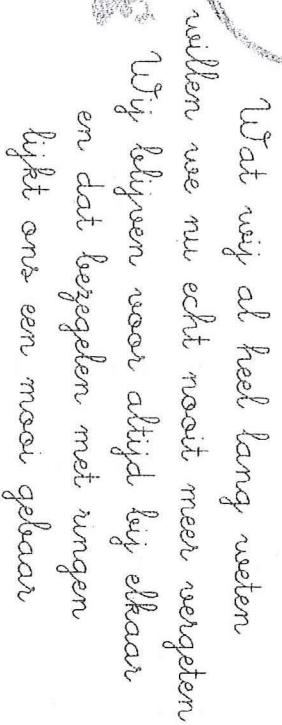 Wat wij al heel lang weten
willen we nu echt nooit meer vergeten
Wij blijven voor altijd bij elkaar
en dat bezegelen met ringen
lijkt ons een mooi gebaar